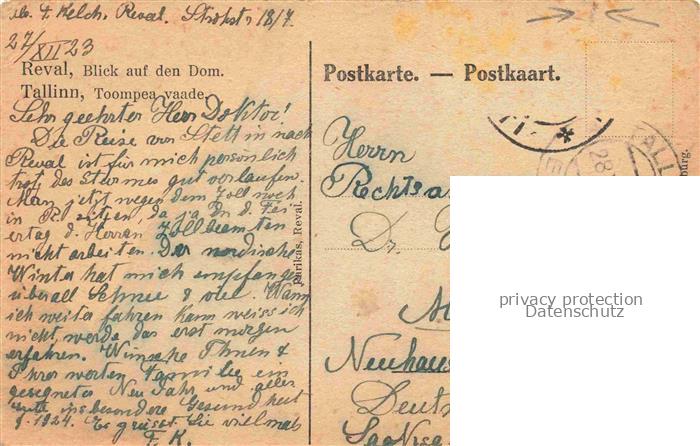 F. Kelch. Reval. 18/7.
27/XII 23
Reval, Blick auf den Dom.
Tallinn, Toompea vaade.
Sehr geehrter Herr Doktor!
Die Reise von Stettin nach
Reval ist für mich persönlich
trotz des Sturmes gut verlaufen.
Man jetzt wegen dem Zoll noch
in R. sitzen, da ja d. d. Fei
ertag d. Herren Zollbeamten
nicht arbeiten. Der nordische
Winter hat mich empfangen
überall Schnee & viel. Wann
ich weiter fahren kann weiss ich
nicht, werde das erst morgen
erfahren. Wünsche Ihnen &
Ihrer werten Familie ein
gesegnetes Neu Jahr und alles
gute insbesondere Gesundheit
1924. Es grüsst Sie vielmals
F. K.
Parikas, Reval.
Postkarte. — Postkaart.
TALL
28
Herrn
Rechtsa
Dr.
Neuhaus
Deut
burg.
privacy protection
Datenschutz